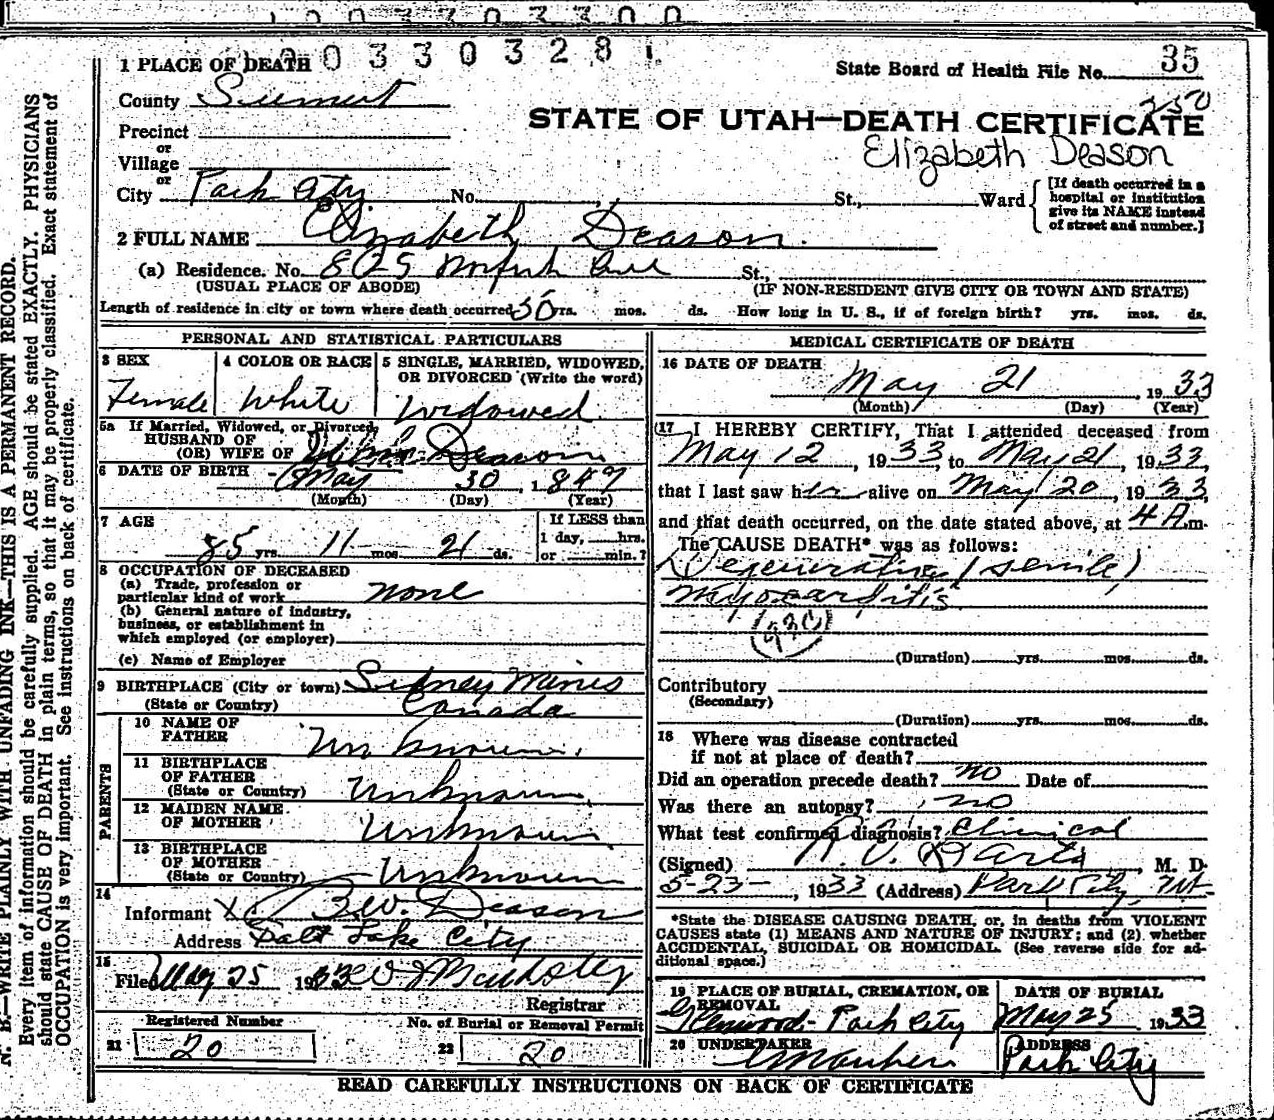 003303281
35
State Board of Health File No.
1 PLACE OF DEATH
County Summit
350
STATE OF UTAH—DEATH CERTIFICATE
Elizabeth Deason
Precinct
or
Village
or
City Park City No. St., Ward
[If death occurred in a hospital or institution give its NAME instead of street and number.]
2 FULL NAME Elizabeth Deason.
(a) Residence. No. 825 Norfolk Ave St.,
(USUAL PLACE OF ABODE) (IF NON-RESIDENT GIVE CITY OR TOWN AND STATE)
Length of residence in city or town where death occurred 50 yrs. mos. ds. How long in U. S., if of foreign birth? yrs. mos. ds.
PERSONAL AND STATISTICAL PARTICULARS
3 SEX
Female
4 COLOR OR RACE
White
5 SINGLE, MARRIED, WIDOWED, OR DIVORCED (Write the word)
Widowed
5a If Married, Widowed, or Divorced,
HUSBAND OF
(OR) WIFE OF Deason
6 DATE OF BIRTH May 30, 1847
(Month) (Day) (Year)
7 AGE
85 yrs. 11 mos. 21 ds.
If LESS than
1 day, hrs.
or min.?
8 OCCUPATION OF DECEASED
(a) Trade, profession or
particular kind of work none
(b) General nature of industry,
business, or establishment in
which employed (or employer)
(c) Name of Employer
9 BIRTHPLACE (City or town) Sidney Mines
(State or Country) Canada
PARENTS
10 NAME OF
FATHER Unknown.
11 BIRTHPLACE
OF FATHER
(State or Country) Unknown.
12 MAIDEN NAME
OF MOTHER Unknown
13 BIRTHPLACE
OF MOTHER
(State or Country) Unknown
14
Informant Deason
Address Salt Lake City
15
Filed May 25 1933
Registrar
Registered Number
21 20
No. of Burial or Removal Permit
22 20
MEDICAL CERTIFICATE OF DEATH
16 DATE OF DEATH
May 21 1933
(Month) (Day) (Year)
17 I HEREBY CERTIFY, That I attended deceased from
May 12, 1933, to May 21, 1933,
that I last saw her alive on May 20, 1933,
and that death occurred, on the date stated above, at 4 A.m.
The CAUSE DEATH* was as follows:
Degenerative (senile)
myocarditis.
(Duration) yrs. mos. ds.
Contributory
(Secondary)
(Duration) yrs. mos. ds.
18 Where was disease contracted
if not at place of death?
Did an operation precede death? no Date of
Was there an autopsy? no
What test confirmed diagnosis? Clinical
(Signed) M. D.
5-23-, 1933 (Address) Park City, Ut.
*State the DISEASE CAUSING DEATH, or, in deaths from VIOLENT
CAUSES state (1) MEANS AND NATURE OF INJURY; and (2) whether
ACCIDENTAL, SUICIDAL OR HOMICIDAL. (See reverse side for ad-
ditional space.)
19 PLACE OF BURIAL, CREMATION, OR
REMOVAL
Glenwood- Park City
DATE OF BURIAL
May 25 1933
20 UNDERTAKER
ADDRESS
Park City
READ CAREFULLY INSTRUCTIONS ON BACK OF CERTIFICATE
N. B.—WRITE PLAINLY WITH UNFADING INK—THIS IS A PERMANENT RECORD.
Every item of information should be carefully supplied. AGE should be stated EXACTLY. PHYSICIANS
should state CAUSE OF DEATH in plain terms, so that it may be properly classified. Exact statement of
OCCUPATION is very important. See instructions on back of certificate.